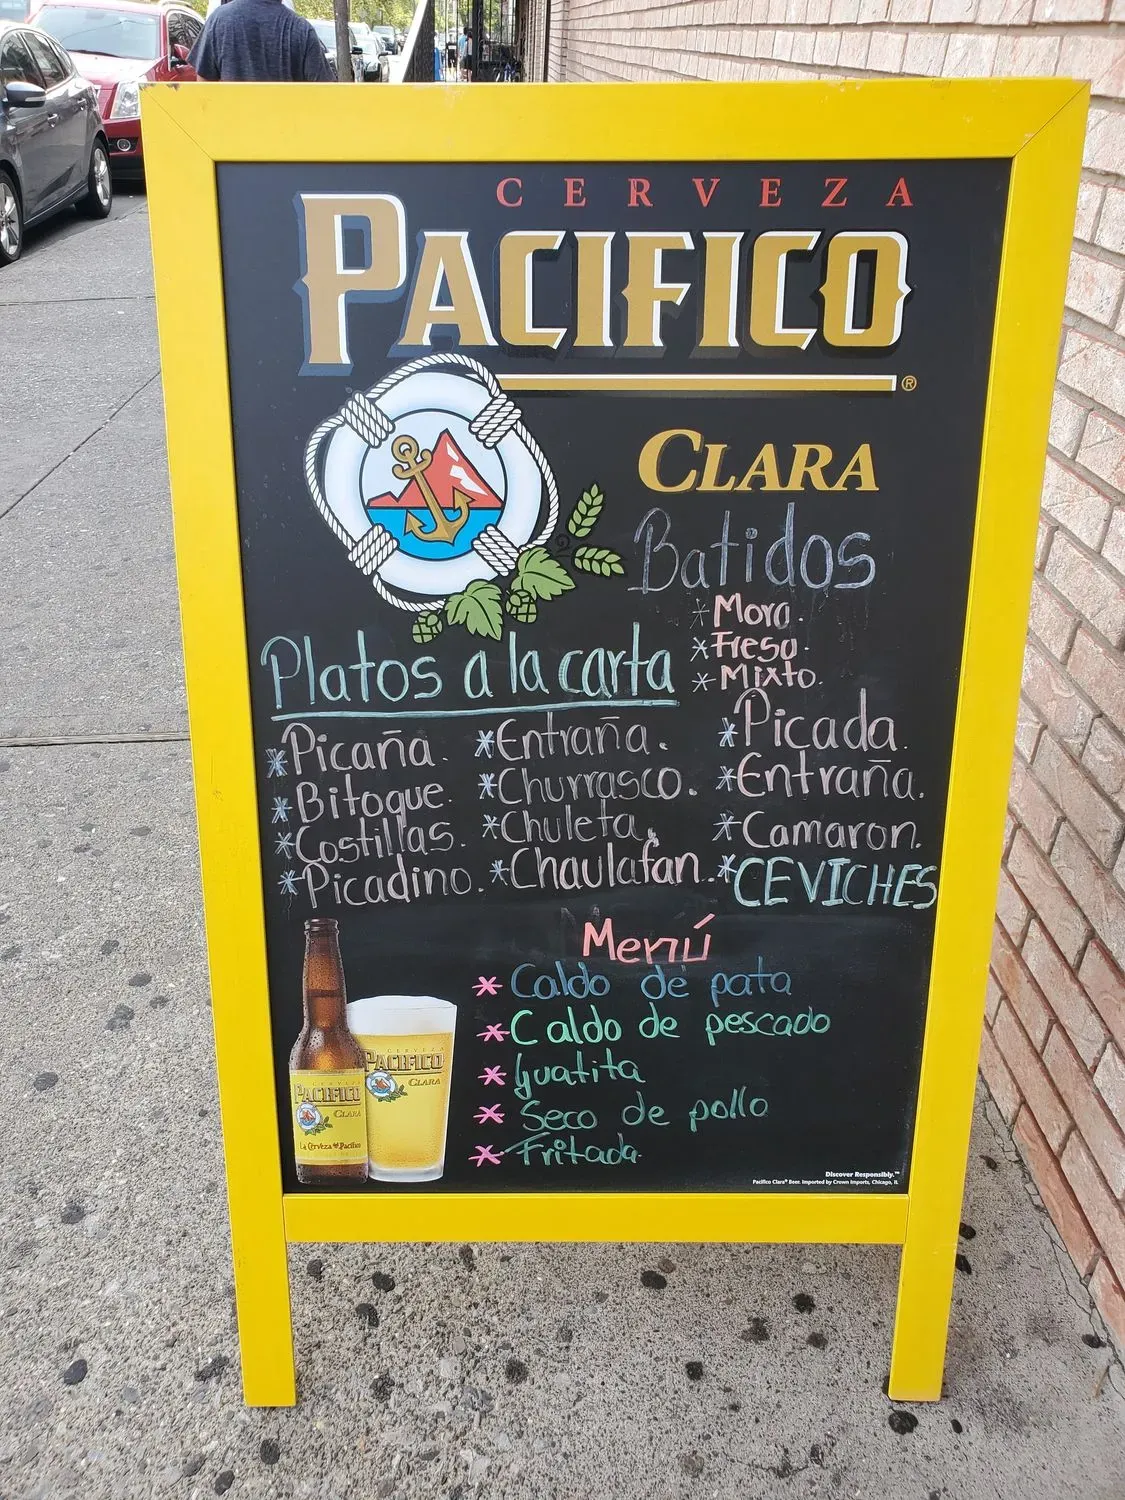 CERVEZA
PACIFICO
®
CLARA
Batidos
*Mora.
*Fresa.
*Mixto.
Platos a la carta
*Picaña. *Entraña. *Picada.
*Bitoque. *Churrasco. *Entraña.
*Costillas. *Chuleta. *Camaron.
*Picadino. *Chaulafan. *CEVICHES
Menú
* Caldo de pata
* Caldo de pescado
* Guatita
* Seco de pollo
* Fritada
CERVEZA
PACIFICO
CLARA
La Cerveza del Pacifico
CERVEZA
PACIFICO
CLARA
Discover Responsibly.™
Pacifico Clara® Beer. Imported by Crown Imports, Chicago, IL